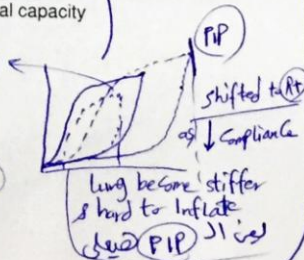 al capacity
PIP
shifted to Rt
as ↓ Compliance
lung become stiffer
& hard to Inflate
PIP